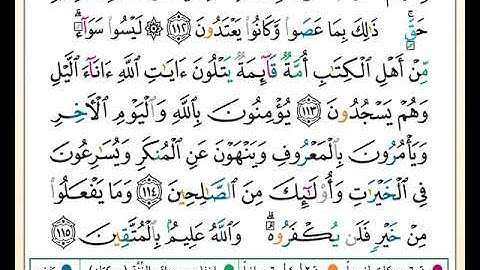 حَقٍّۚ ذَٰلِكَ بِمَا عَصَوا۟ وَّكَانُوا۟ يَعْتَدُونَ ﴿١١٢﴾ ۞ لَيْسُوا۟ سَوَآءًۗ
مِّنْ أَهْلِ ٱلْكِتَٰبِ أُمَّةٌ قَآئِمَةٌ يَتْلُونَ ءَايَٰتِ ٱللَّهِ ءَانَآءَ ٱلَّيْلِ
وَهُمْ يَسْجُدُونَ ﴿١١٣﴾ يُؤْمِنُونَ بِٱللَّهِ وَٱلْيَوْمِ ٱلْأَخِرِ
وَيَأْمُرُونَ بِٱلْمَعْرُوفِ وَيَنْهَوْنَ عَنِ ٱلْمُنكَرِ وَيُسَٰرِعُونَ
فِى ٱلْخَيْرَٰتِ وَأُو۟لَٰٓئِكَ مِنَ ٱلصَّٰلِحِينَ ﴿١١٤﴾ وَمَا يَفْعَلُوا۟
مِنْ خَيْرٍ فَلَن يُكْفَرُوهُۗ وَٱللَّهُ عَلِيمٌۢ بِٱلْمُتَّقِينَ ﴿١١٥﴾